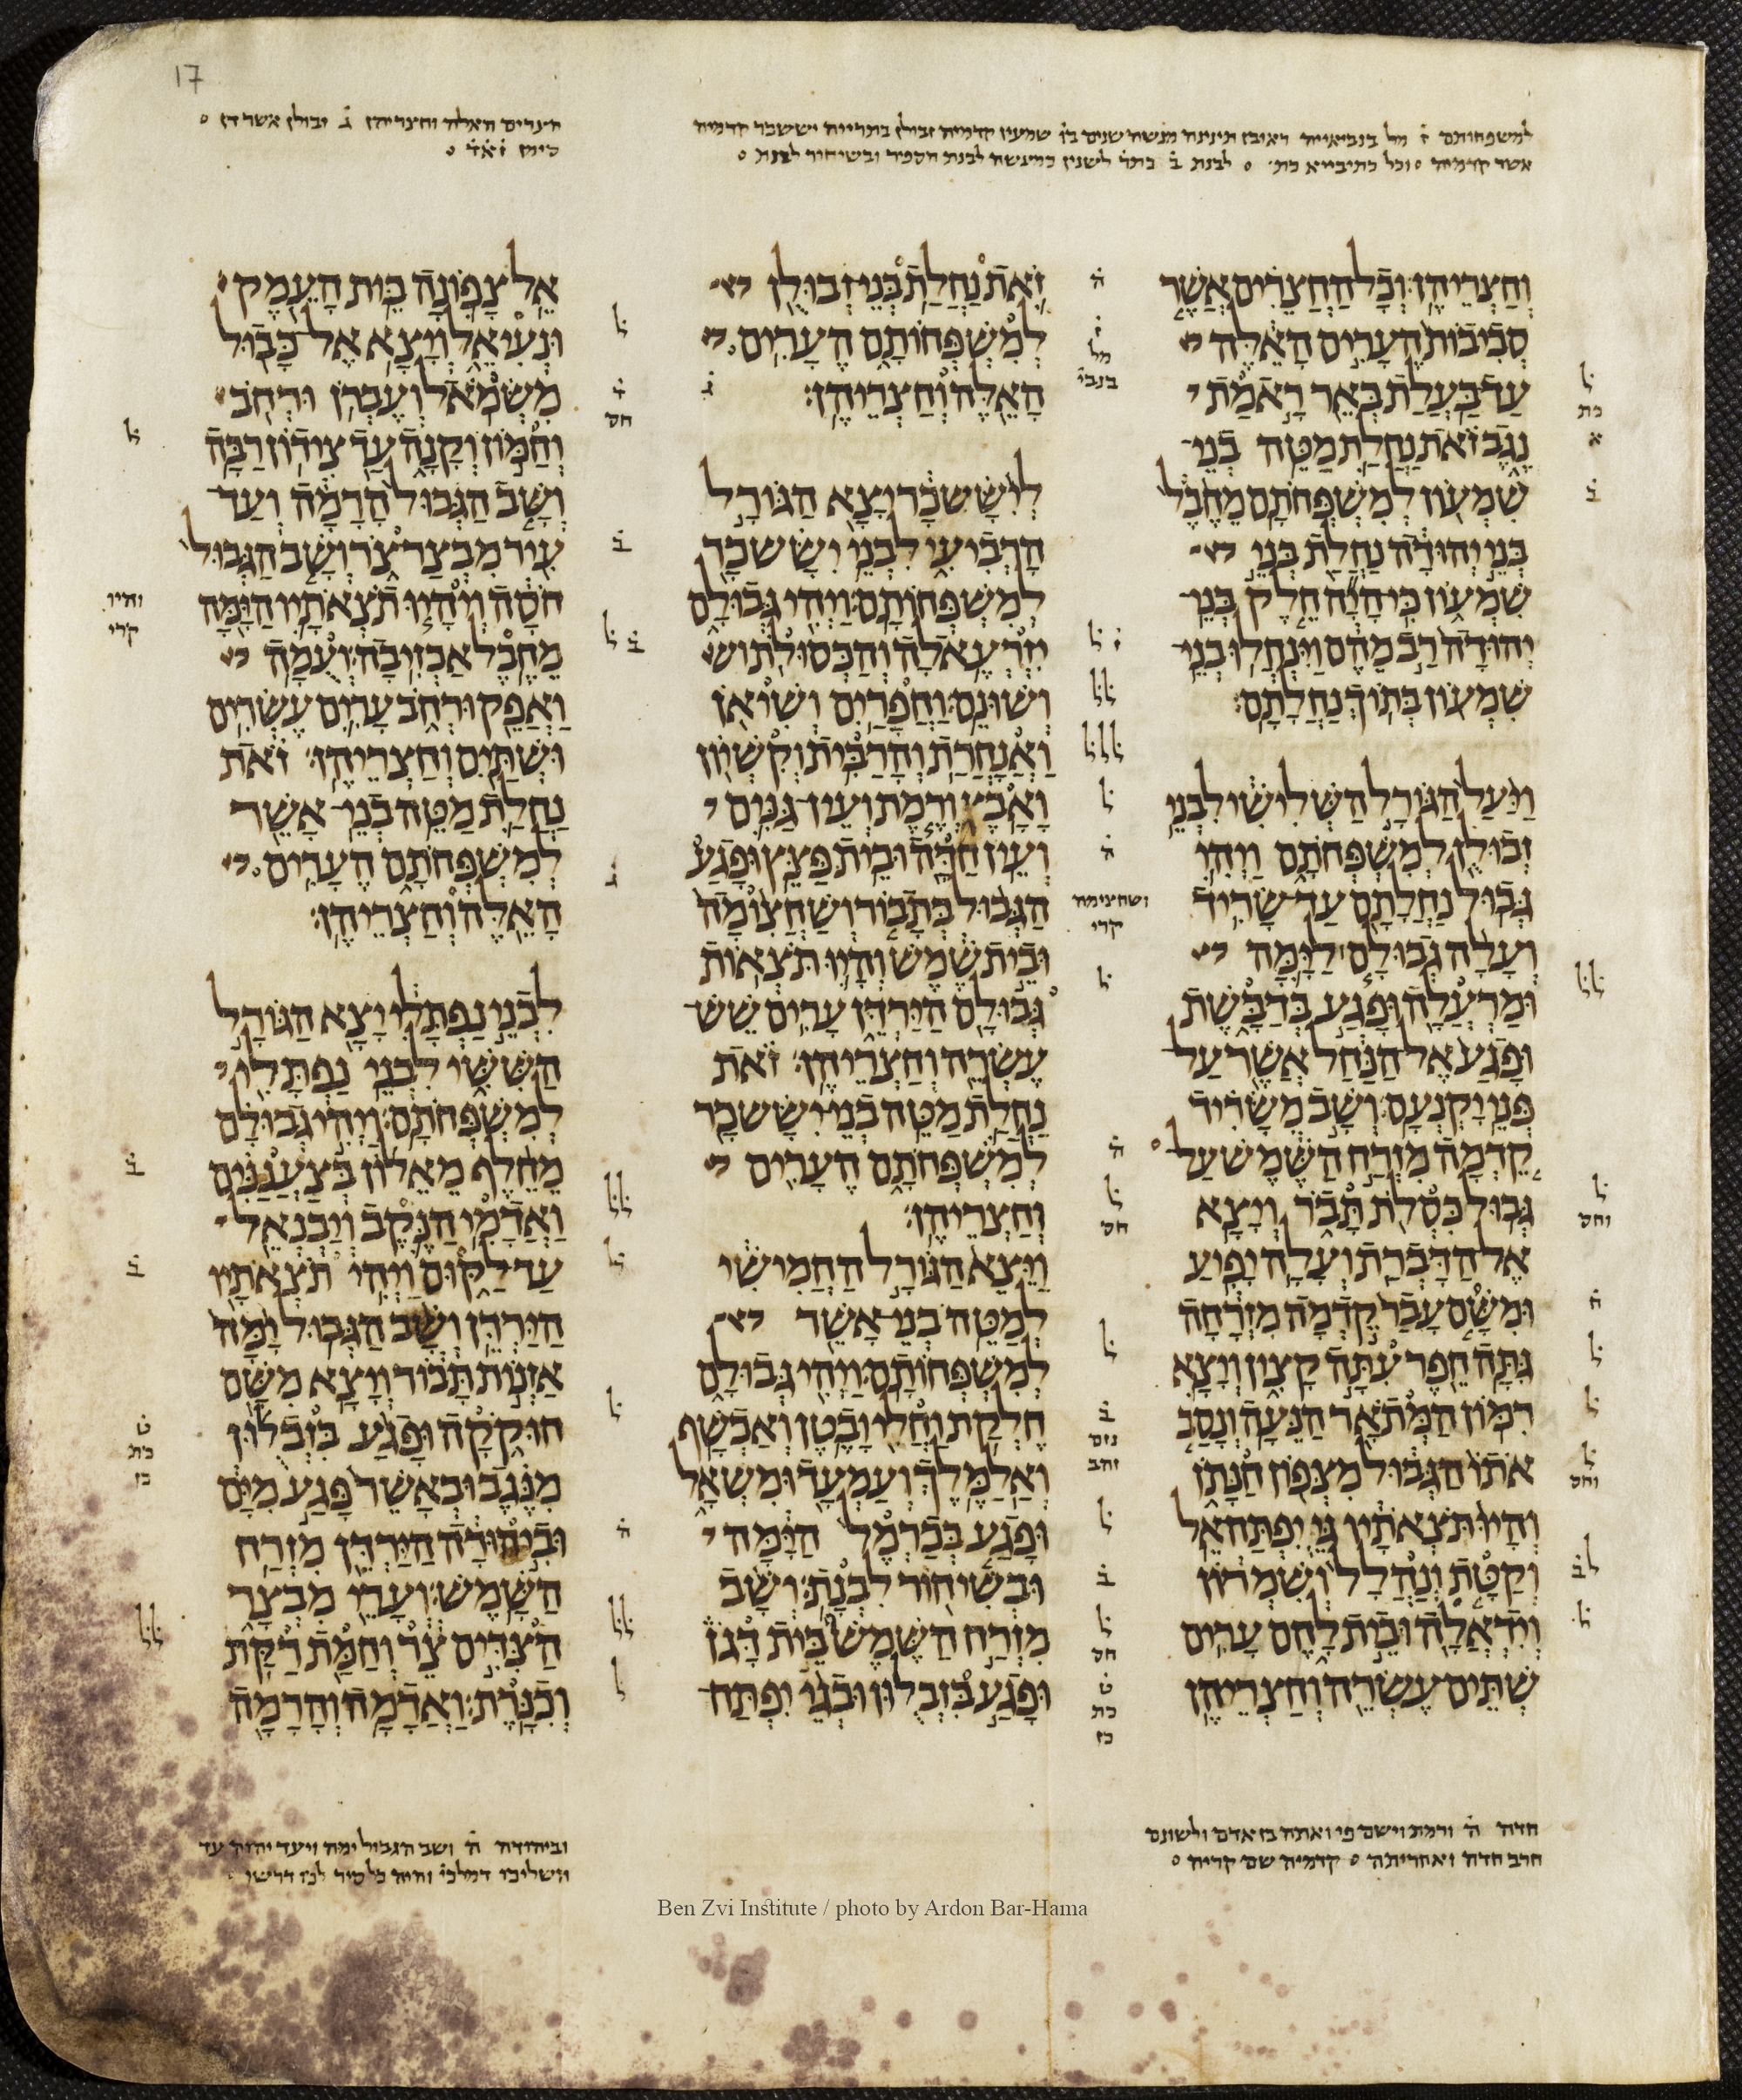 17
למשפחותם ז֗ מל בנביאייה ראובן תינינה מנשה שנים בו֗ שמעון קדמיה זבולן בתרייה יששכר קדמיה
אשר קדמיה ׃ וכל כתיבייא כת׳ ׃ לבנת ב֗
הערים האלה וחצריהן ג֗ זבולן אשר דן ׃
וְחַצְרֵיהֶן׃ וְכָל הַחֲצֵרִים אֲשֶׁר
סְבִיבוֹת הֶעָרִים הָאֵלֶּה
עַד בַּעֲלַת בְּאֵר רָאמַת
נֶגֶב זֹאת נַחֲלַת מַטֵּה בְנֵי־
שִׁמְעוֹן לְמִשְׁפְּחֹתָם׃ מֵחֶבֶל
בְּנֵי יְהוּדָה נַחֲלַת בְּנֵי
שִׁמְעוֹן כִּי הָיָה חֵלֶק בְּנֵי־
יְהוּדָה רַב מֵהֶם וַיִּנְחֲלוּ בְנֵי־
שִׁמְעוֹן בְּתוֹךְ נַחֲלָתָם׃
וַיַּעַל הַגּוֹרָל הַשְּׁלִישִׁי לִבְנֵי
זְבוּלֻן לְמִשְׁפְּחֹתָם וַיְהִי
גְּבוּל נַחֲלָתָם עַד שָׂרִיד׃
וְעָלָה גְבוּלָם לַיָּמָּה
וּמַרְעֲלָה וּפָגַע בְּדַבָּשֶׁת
וּפָגַע אֶל הַנַּחַל אֲשֶׁר עַל־
פְּנֵי יָקְנְעָם׃ וְשָׁב מִשָּׂרִיד
קֵדְמָה מִזְרַח הַשֶּׁמֶשׁ עַל
גְּבוּל כִּסְלֹת תָּבֹר וְיָצָא
אֶל הַדָּבְרַת וְעָלָה יָפִיעַ׃
וּמִשָּׁם עָבַר קֵדְמָה מִזְרָחָה
גִּתָּה חֵפֶר עִתָּה קָצִין וְיָצָא
רִמּוֹן הַמְּתֹאָר הַנֵּעָה׃ וְנָסַב
אֹתוֹ הַגְּבוּל מִצְּפוֹן חַנָּתֹן
וְהָיוּ תֹּצְאֹתָיו גֵּי יִפְתַּח אֵל׃
וְקַטָּת וְנַהֲלָל וְשִׁמְרוֹן
וְיִדְאֲלָה וּבֵית לָחֶם עָרִים
שְׁתֵּים עֶשְׂרֵה וְחַצְרֵיהֶן׃
זֹאת נַחֲלַת בְּנֵי זְבוּלֻן
לְמִשְׁפְּחוֹתָם הֶעָרִים
הָאֵלֶּה וְחַצְרֵיהֶן׃
לְיִשָּׂשכָר יָצָא הַגּוֹרָל
הָרְבִיעִי לִבְנֵי יִשָּׂשכָר
לְמִשְׁפְּחוֹתָם׃ וַיְהִי גְּבוּלָם
יִזְרְעֶאלָה וְהַכְּסוּלֹת
וְשׁוּנֵם׃ וַחֲפָרַיִם וְשִׁיאֹן
וַאֲנָחֲרַת׃ וְהָרַבִּית וְקִשְׁיוֹן
וָאָבֶץ׃ וְרֶמֶת וְעֵין־גַּנִּים
וְעֵין חַדָּה וּבֵית פַּצֵּץ׃ וּפָגַע
הַגְּבוּל בְּתָבוֹר וְשַׁחֲצוּמָה
וּבֵית שֶׁמֶשׁ וְהָיוּ תֹּצְאוֹת
גְּבוּלָם הַיַּרְדֵּן עָרִים שֵׁשׁ־
עֶשְׂרֵה וְחַצְרֵיהֶן׃ זֹאת
נַחֲלַת מַטֵּה בְנֵי יִשָּׂשכָר
לְמִשְׁפְּחֹתָם הֶעָרִים
וְחַצְרֵיהֶן׃
וַיֵּצֵא הַגּוֹרָל הַחֲמִישִׁי
לְמַטֵּה בְנֵי־אָשֵׁר
לְמִשְׁפְּחוֹתָם׃ וַיְהִי גְּבוּלָם
חֶלְקַת וַחֲלִי וָבֶטֶן וְאַכְשָׁף׃
וְאַלַמֶּלֶךְ וְעַמְעָד וּמִשְׁאָל
וּפָגַע בְּכַרְמֶל הַיָּמָּה
וּבְשִׁיחוֹר לִבְנָת׃ וְשָׁב
מִזְרַח הַשֶּׁמֶשׁ בֵּית דָּגֹן
וּפָגַע בִּזְבֻלוּן וּבְגֵי יִפְתַּח־
אֵל צָפוֹנָה בֵּית הָעֵמֶק
וּנְעִיאֵל וְיָצָא אֶל־כָּבוּל
מִשְּׂמֹאל׃ וְעֶבְרֹן וּרְחֹב
וְחַמּוֹן וְקָנָה עַד צִידוֹן רַבָּה׃
וְשָׁב הַגְּבוּל הָרָמָה וְעַד־
עִיר מִבְצַר צֹר וְשָׁב הַגְּבוּל
חֹסָה וְיִהְיוּ תֹצְאֹתָיו הַיָּמָּה
מֵחֶבֶל אַכְזִיבָה׃ וְעֻמָה
וַאֲפֵק וּרְחֹב עָרִים עֶשְׂרִים
וּשְׁתַּיִם וְחַצְרֵיהֶן׃ זֹאת
נַחֲלַת מַטֵּה בְנֵי־אָשֵׁר
לְמִשְׁפְּחֹתָם הֶעָרִים
הָאֵלֶּה וְחַצְרֵיהֶן׃
לִבְנֵי נַפְתָּלִי יָצָא הַגּוֹרָל
הַשִּׁשִּׁי לִבְנֵי נַפְתָּלִי
לְמִשְׁפְּחֹתָם׃ וַיְהִי גְבוּלָם
מֵחֵלֶף מֵאֵלוֹן בְּצַעֲנַנִּים
וַאֲדָמִי הַנֶּקֶב וְיַבְנְאֵל
עַד לַקּוּם וַיְהִי תֹצְאֹתָיו
הַיַּרְדֵּן׃ וְשָׁב הַגְּבוּל יָמָּה
אַזְנוֹת תָּבוֹר וְיָצָא מִשָּׁם
חוּקֹקָה וּפָגַע בִּזְבֻלוּן
מִנֶּגֶב וּבְאָשֵׁר פָּגַע מִיָּם
וּבִיהוּדָה הַיַּרְדֵּן מִזְרַח
הַשָּׁמֶשׁ׃ וְעָרֵי מִבְצָר
הַצִּדִּים צֵר וְחַמַּת רַקַּת
וְכִנָּרֶת׃ וַאֲדָמָה וְהָרָמָה
ושחצימה
קרי
והיו
קרי
חדה ה֗ ורמת וישם פי ואתה בן אדם ולשונם
חרב חדה ואחריתה ׃ קדמיה שם קריה ׃
וביהודה ה֗ ושב הגבול ימה ויעד יהוה
Ben Zvi Institute / photo by Ardon Bar-Hama